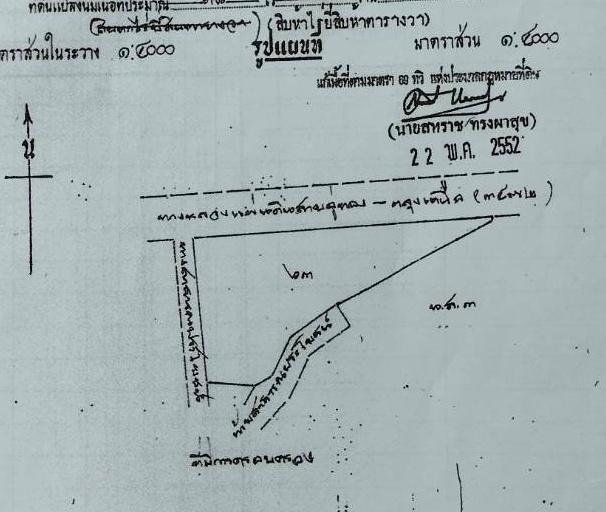 ที่ดินแปลงนี้มีเนื้อที่ประมาณ
(สิบห้าไร่ยี่สิบห้าตารางวา)
มาตราส่วนในระวาง ๑:๔๐๐๐ รูปแผนที่ มาตราส่วน ๑:๔๐๐๐
แก้เนื้อที่ตามมาตรา ๖๙ ทวิ แห่งประมวลกฎหมายที่ดิน
(นายสหราช ทรงผาสุข)
22 พ.ค. 2552
น
ทางหลวงแผ่นดินสาย
๖๓
น.ส.๓
ทางสาธารณประโยชน์
ห้วยสาธารณประโยชน์